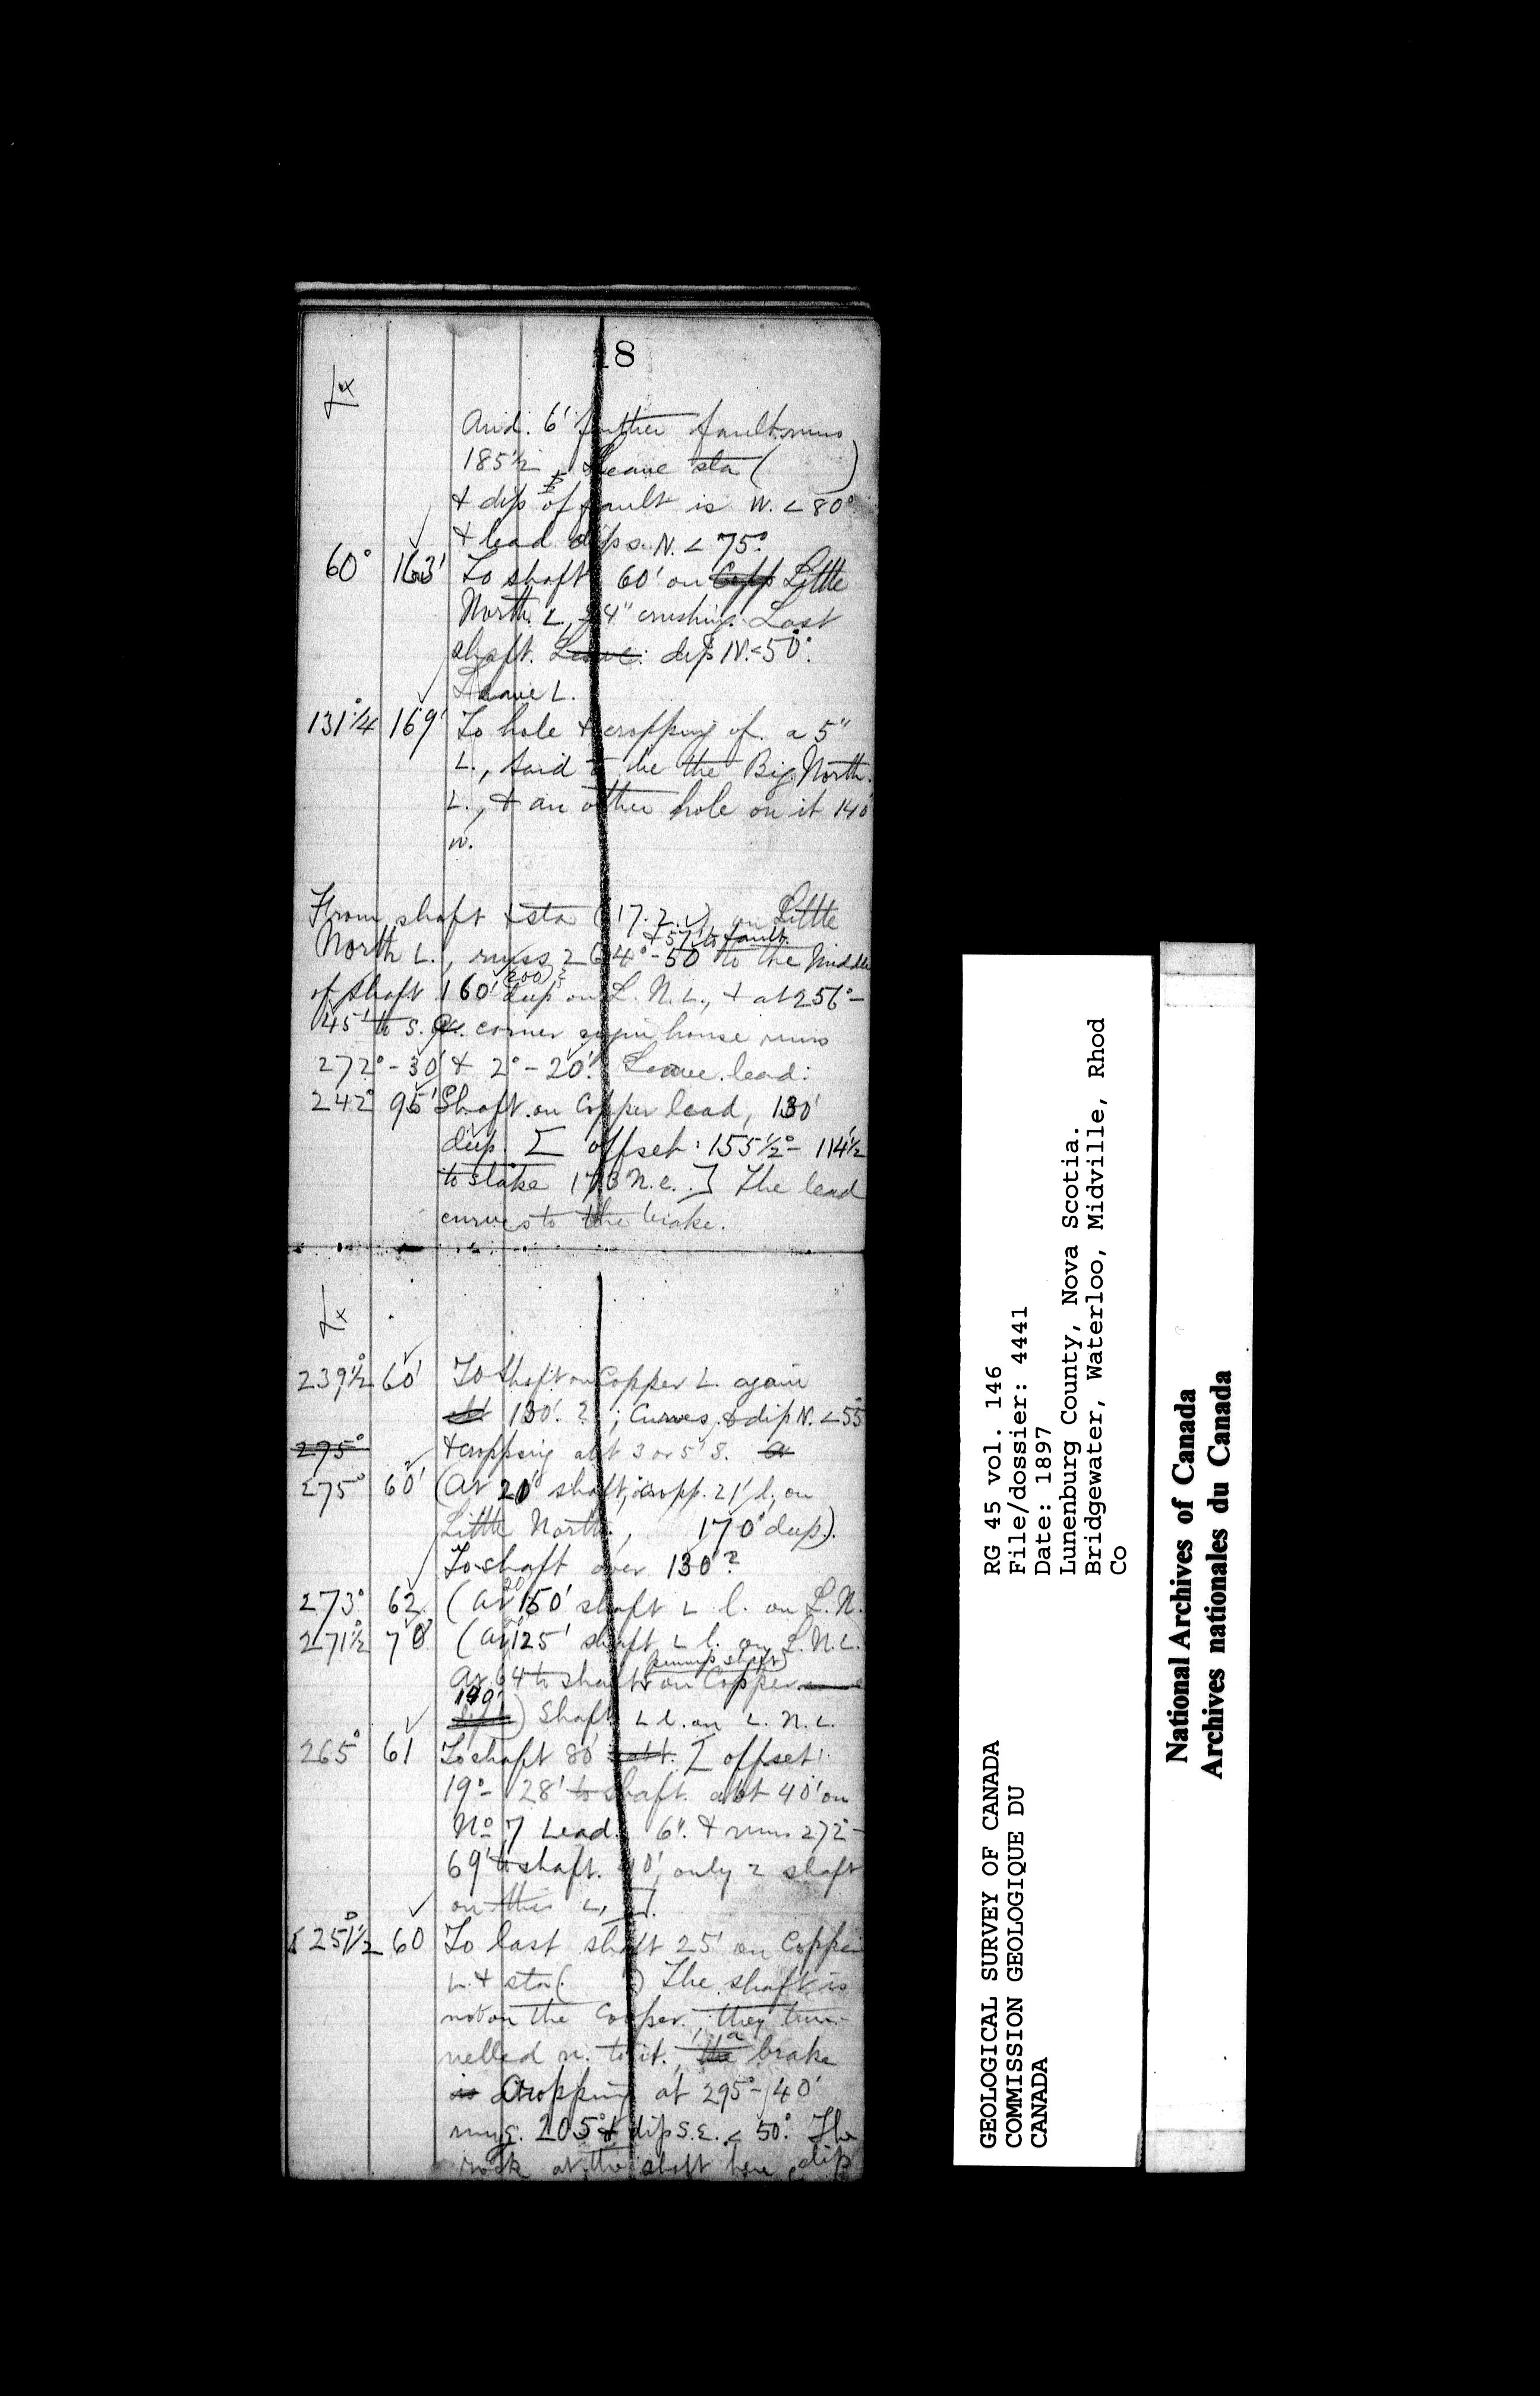 18
And. 6' further fault runs
185½ Leave sta ( )
& dip of fault is W. < 80°
& lead dips. N. < 75°.
60° 163' To shaft 60' on Copp Little
North. L, 4" crushing. Last
shaft. Leave. dip N. < 50°.
Leave L.
131°¼ 169' To hole & cropping of. a 5"
L., said to be the Big North.
L., & an other hole on it 140'
W.
From shaft & sta (17. 2. ) on Little
& 57' to fault.
North L., runs 264° - 50' to the Middle
(200)?
of shaft 160' deep on L. N. L., & at 256° -
45' to S. corner house runs
272° - 30' & 2° - 20'. Leave lead:
242° 95' Shaft on Copper lead, 130'
deep. [ offset: 155½° - 114½'
to stake 173 N.E. ] The lead
curves to the brake.
239½° 60' To shaft on Copper L. again
abt 130'. ? ; Curves & dip N. < 55°
275° & cropping abt 3 or 5' S.
275° 60' (At 20' shaft, cropp. 21' l, on
Little North, 170' deep).
To shaft over 130'?
20'
273° 62 (At 150' shaft L l. on L. N.
271½° 70' (At 125' shaft L l. on L. N. L.
pump shaft)
At 64 to shaft on Copper
190'
) Shaft L l. on L. N. L.
265° 61 To shaft 80' abt. [ offset:
19° - 28' to shaft. abt 40' on
No 7 Lead. 6". & runs 272° -
69' to shaft. 40', only 2 shaft
on this L, ].
251½° 60 To last shaft 25' on Copper
L. & sta ( ) The shaft is
not on the Copper, they tun-
a
nelled n. to it. the brake
is Cropping at 295° - 40'
runs. 205° & dip S.E. < 50°. The
rock at the shaft here dip
GEOLOGICAL SURVEY OF CANADA
COMMISSION GEOLOGIQUE DU
CANADA
RG 45 vol. 146
File/dossier: 4441
Date: 1897
Lunenburg County, Nova Scotia.
Bridgewater, Waterloo, Midville, Rhod
Co
National Archives of Canada
Archives nationales du Canada